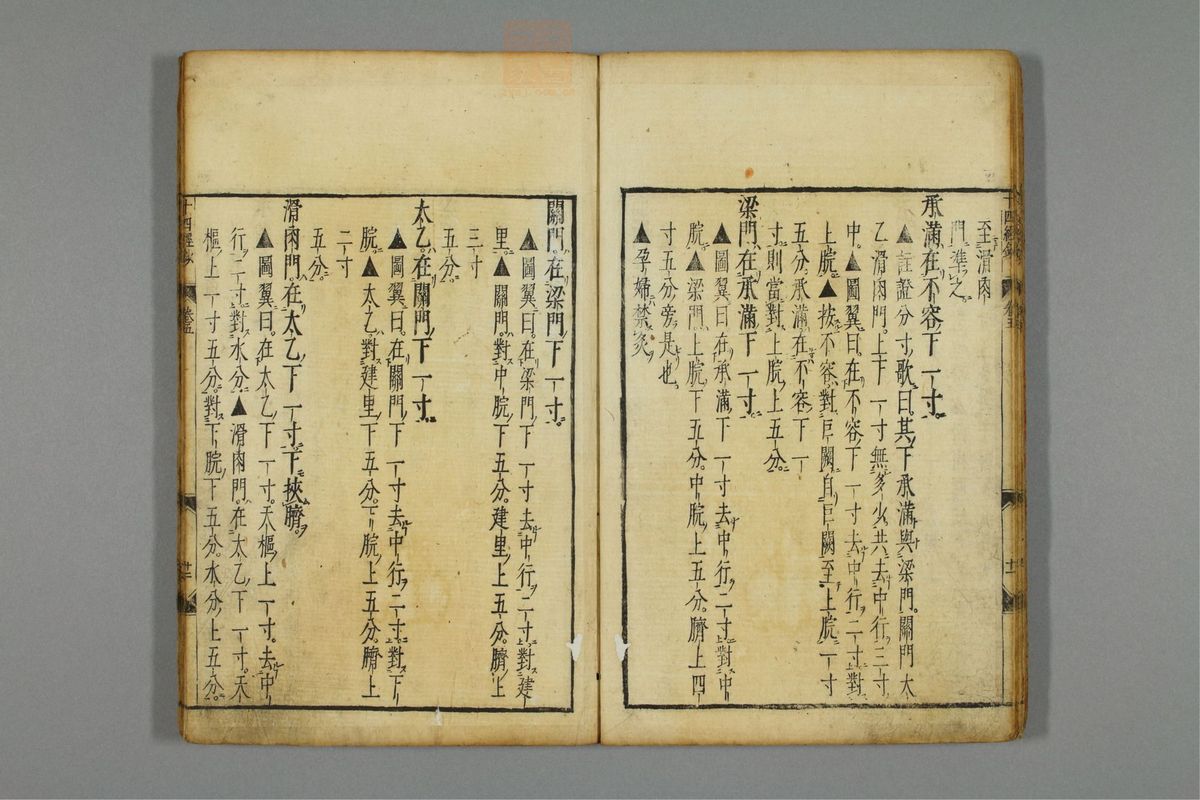 至滑肉
門準之
承滿在不容下一寸。
▲註證分寸歌曰。其下承滿與梁門。關門太
乙滑肉門。上下一寸無多少。共去中行二寸
中。▲圖翼曰。在不容下一寸。去中行二寸。對
上脘。▲按不容對巨闕。自巨闕至上脘一寸
五分。承滿在不容下一
寸。則當對上脘上五分。
梁門在承滿下一寸。
▲圖翼曰。在承滿下一寸。去中行二寸。對中
脘。▲梁門。上脘下五分。中脘上五分。臍上四
寸五分。旁是也。
▲孕婦禁灸。
關門。在梁門下一寸。
▲圖翼曰。在梁門下一寸。去中行二寸。對建
里。▲關門。對中脘下五分。建里上五分。臍上
三寸
五分。
太乙。在關門下一寸。
▲圖翼曰。在關門下一寸。去中行二寸。對下
脘。▲太乙。對建里下五分。下脘上五分。臍上
二寸
五分。
滑肉門。在太乙下一寸。下挾臍。
▲圖翼曰。在太乙下一寸。天樞上一寸。去中
行二寸。對水分。▲滑肉門。在太乙下一寸。天
樞上一寸五分。對下脘下五分。水分上五分。